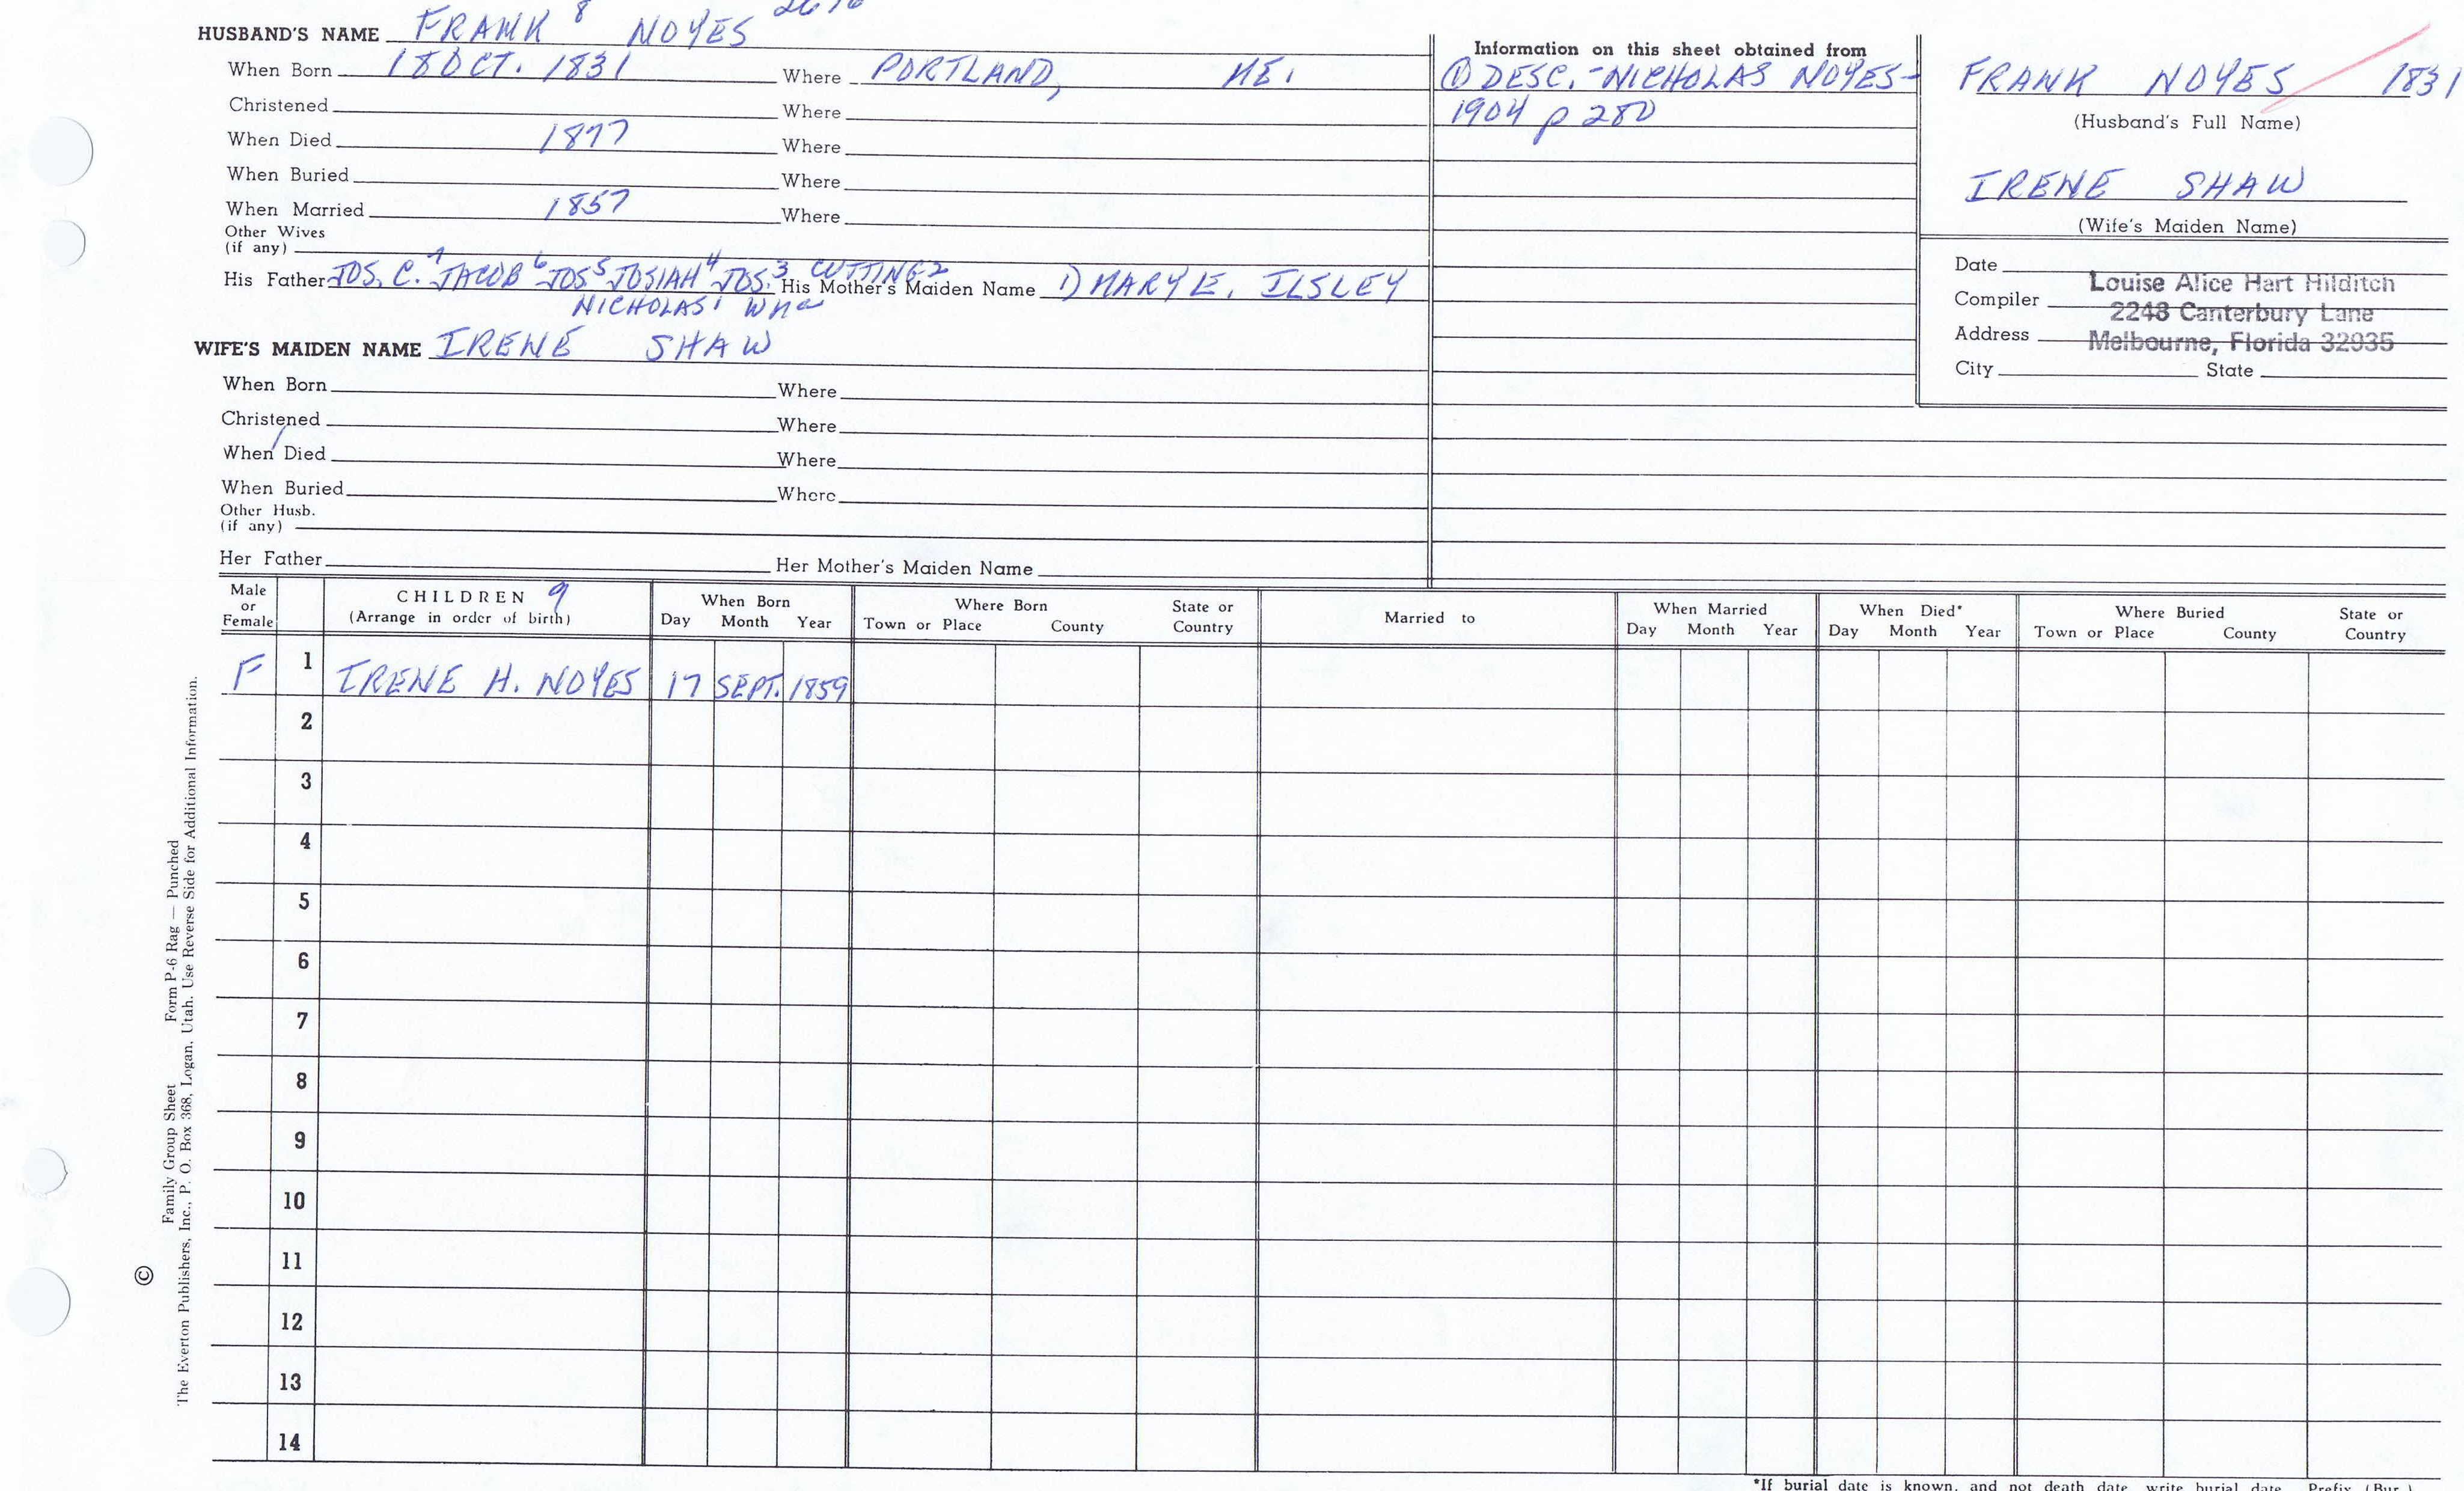 HUSBAND'S NAME FRANK 8 NOYES
When Born 18 OCT. 1831 Where PORTLAND, ME.
Christened Where
When Died 1877 Where
When Buried Where
When Married 1857 Where
Other Wives
(if any)
His Father JOS. C. 7 JACOB 6 JOS 5 JOSIAH 4 JOS. 3 CUTTING 2 His Mother's Maiden Name 1) MARY E. ILSLEY
NICHOLAS 1
WIFE'S MAIDEN NAME IRENE SHAW
When Born Where
Christened Where
When Died Where
When Buried Where
Other Husb.
(if any)
Her Father Her Mother's Maiden Name
Information on this sheet obtained from
① DESC. - NICHOLAS NOYES -
1904 p 280
FRANK NOYES 1831
(Husband's Full Name)
IRENE SHAW
(Wife's Maiden Name)
Date
Louise Alice Hart Hilditch
Compiler
2248 Canterbury Lane
Address
Melbourne, Florida 32935
City State
Male or Female
CHILDREN 9
(Arrange in order of birth)
When Born
Day Month Year
Where Born
Town or Place County State or Country
Married to
When Married
Day Month Year
When Died*
Day Month Year
Where Buried
Town or Place County State or Country
F 1 IRENE H. NOYES 17 SEPT. 1859
2
3
4
5
6
7
8
9
10
11
12
13
14
*If burial date is known, and not death date, write burial date. Prefix (Bur.)
© Family Group Sheet Form P-6 Rag — Punched
The Everton Publishers, Inc., P. O. Box 368, Logan, Utah. Use Reverse Side for Additional Information.